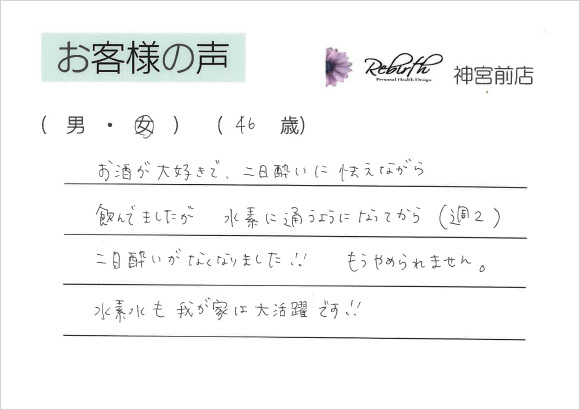 お客様の声
Rebirth
Personal Health Design
神宮前店
( 男 ・ 女 ) ( 46 歳)
お酒が大好きで、二日酔いに怯えながら
飲んでましたが 水素に通うようになってから (週2)
二日酔いがなくなりました!! もうやめられません。
水素水も我が家は大活躍です!!